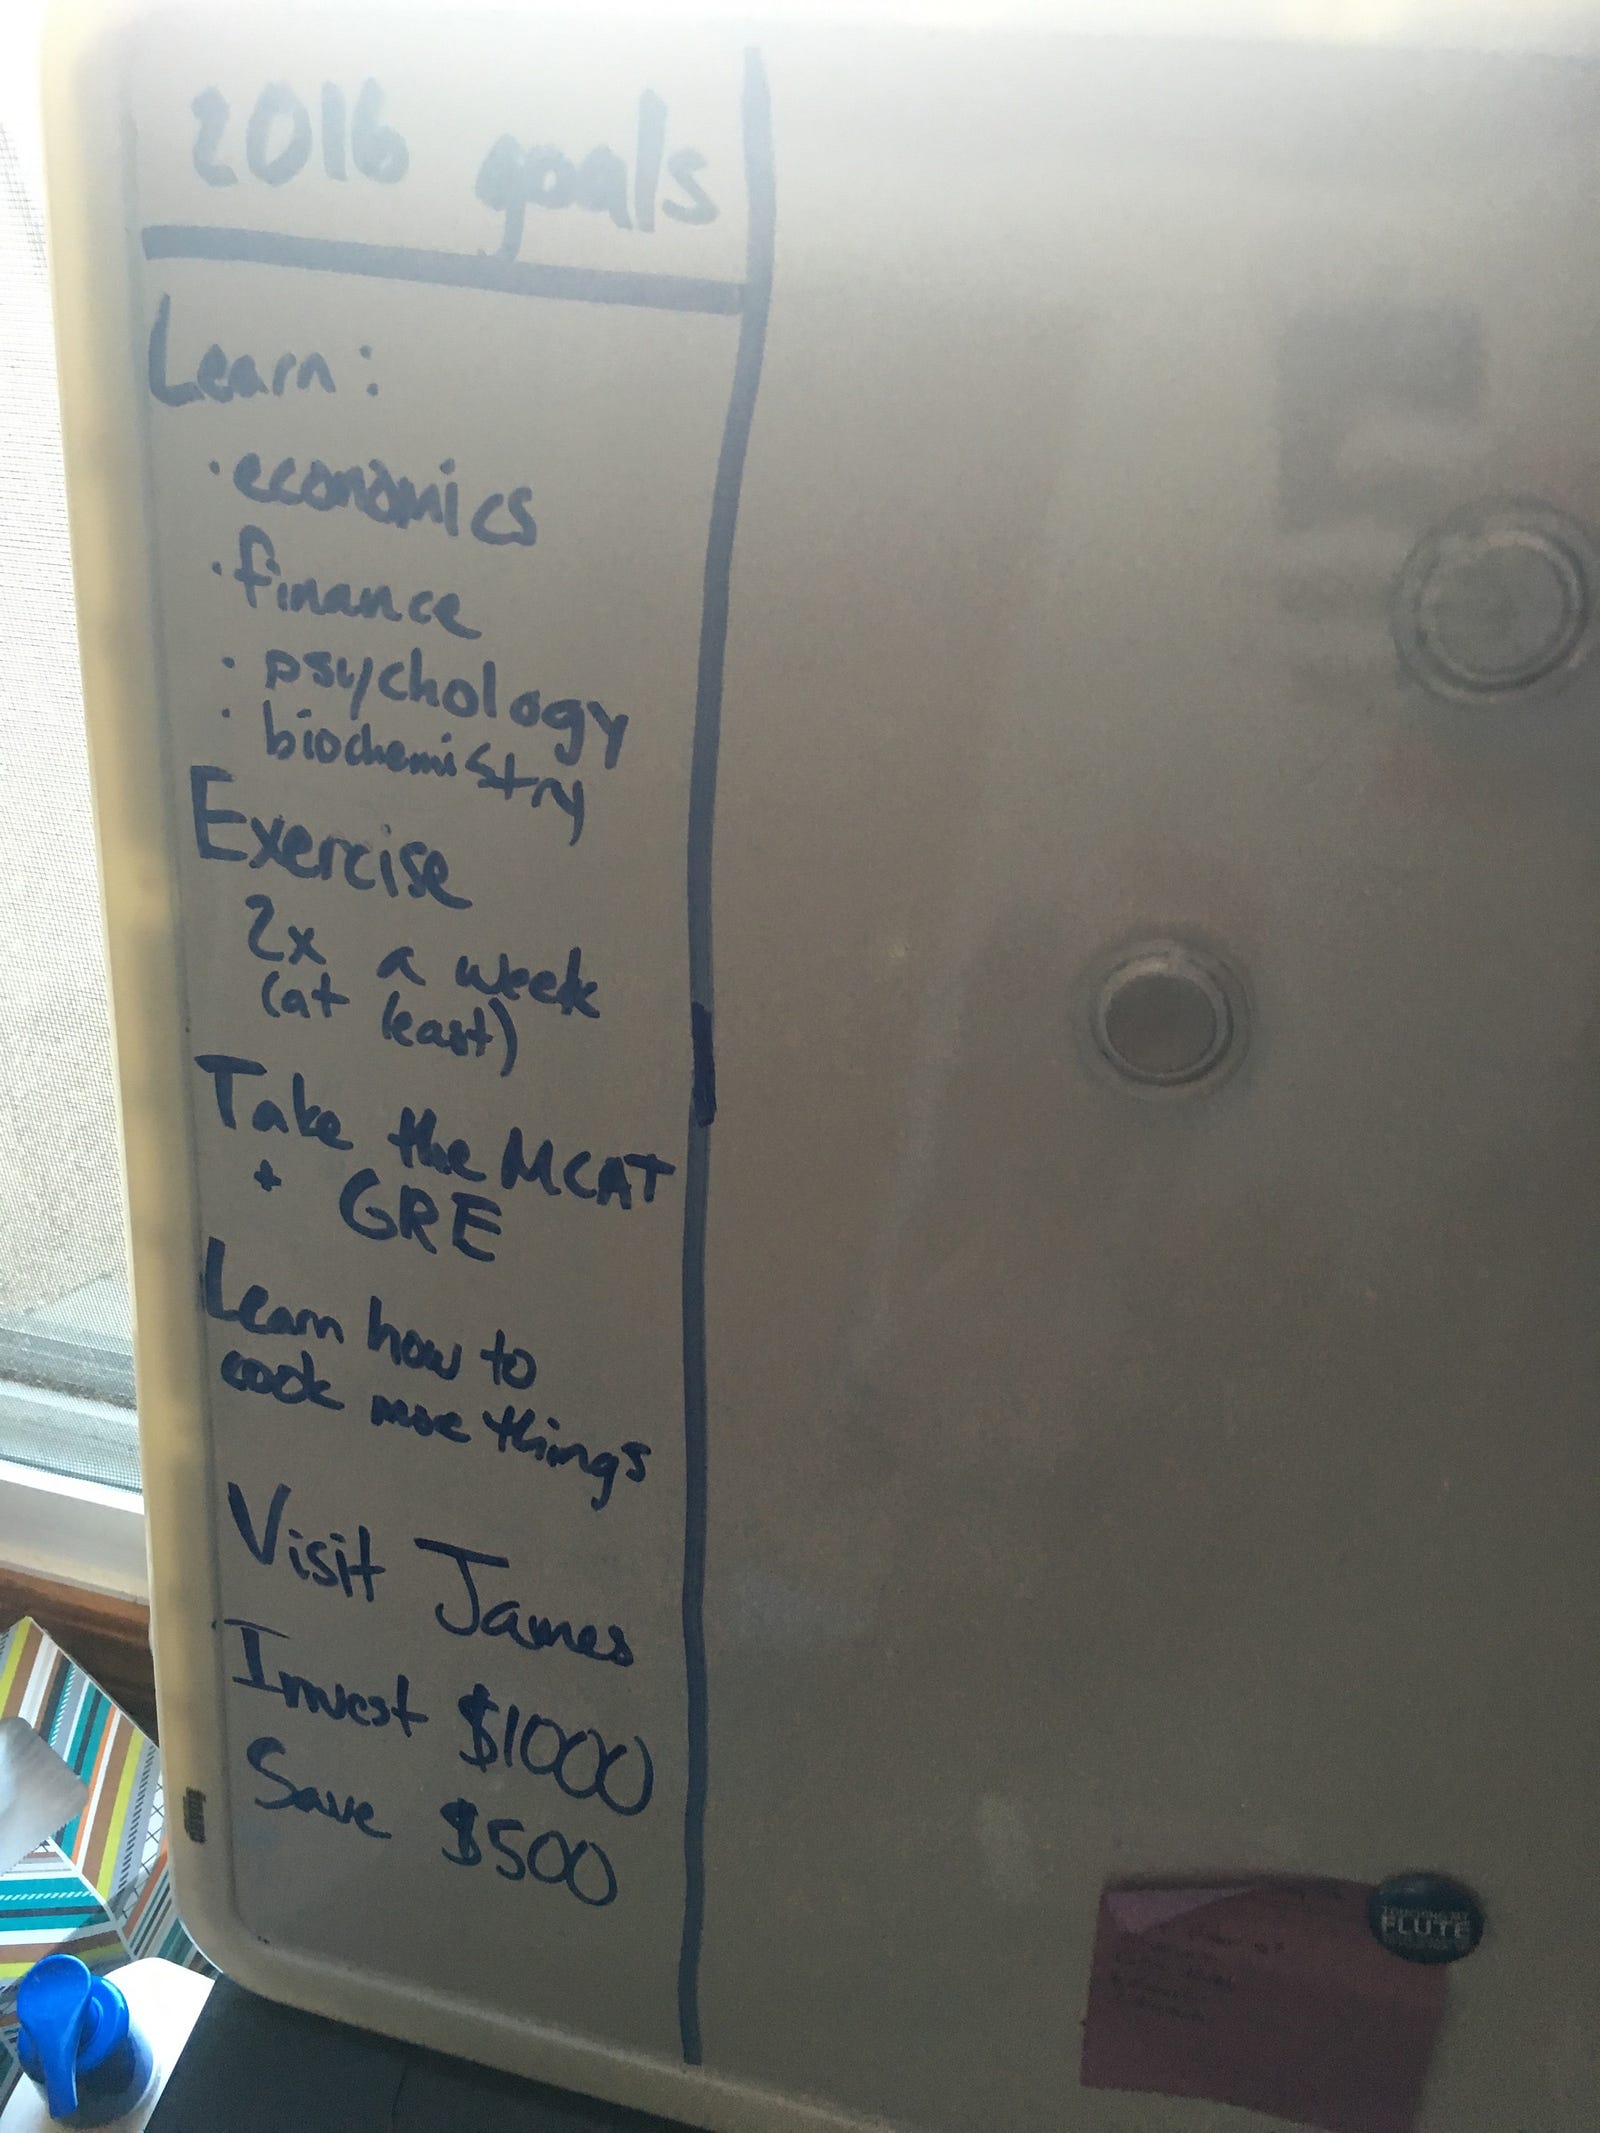 2016 goals
Learn:
· economics
· finance
· psychology
· biochemistry
Exercise
2x a week
(at least)
Take the MCAT
+ GRE
Learn how to
cook more things
Visit James
Invest $1000
Save $500
FLUTE